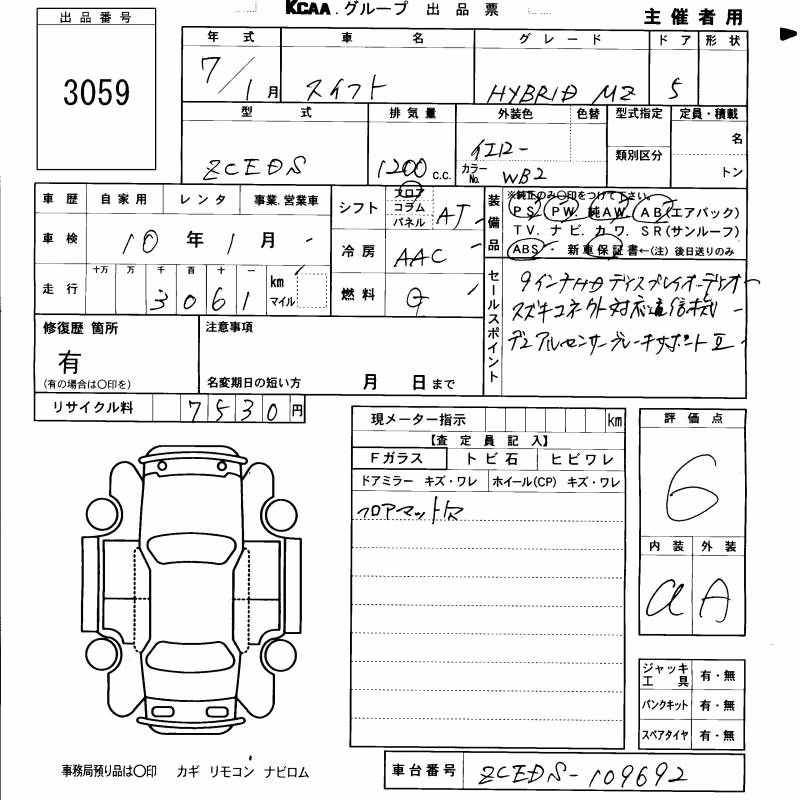 KCAA.グループ 出品票
主催者用
出品番号
3059
年式 車名 グレード ドア 形状
7/1月 スイフト HYBRID MZ 5
型式 排気量 外装色 色替 型式指定 定員・積載
ZCEDS 1200 c.c. イエロー 類別区分 名
カラーNo. WB2 トン
車歴 自家用 レンタ 事業.営業車
車検 10年1月
走行 十万 万 千 百 十 一 km マイル
3061
シフト フロア コラム パネル AT
冷房 AAC
燃料 G
装備品
※純正のみ〇印をつけて下さい。
PS. PW. 純AW. AB(エアバック)
TV. ナビ. カワ. SR(サンルーフ)
ABS・ 新車保証書←(注) 後日送りのみ
セールスポイント
9インチHDディスプレイオーディオ
スズキコネクト対応通信機
デュアルセンサーブレーキサポートⅡ
修復歴 箇所
有
(有の場合は〇印を)
注意事項
名変期日の短い方 月 日まで
リサイクル料 7530円
現メーター指示 km
【査定員記入】
Fガラス トビ石 ヒビワレ
ドアミラー キズ・ワレ ホイール(CP) キズ・ワレ
フロアマット欠
評価点
6
内装 外装
a A
ジャッキ工具 有・無
パンクキット 有・無
スペアタイヤ 有・無
事務局預り品は〇印 カギ リモコン ナビロム
車台番号 ZCEDS-109692